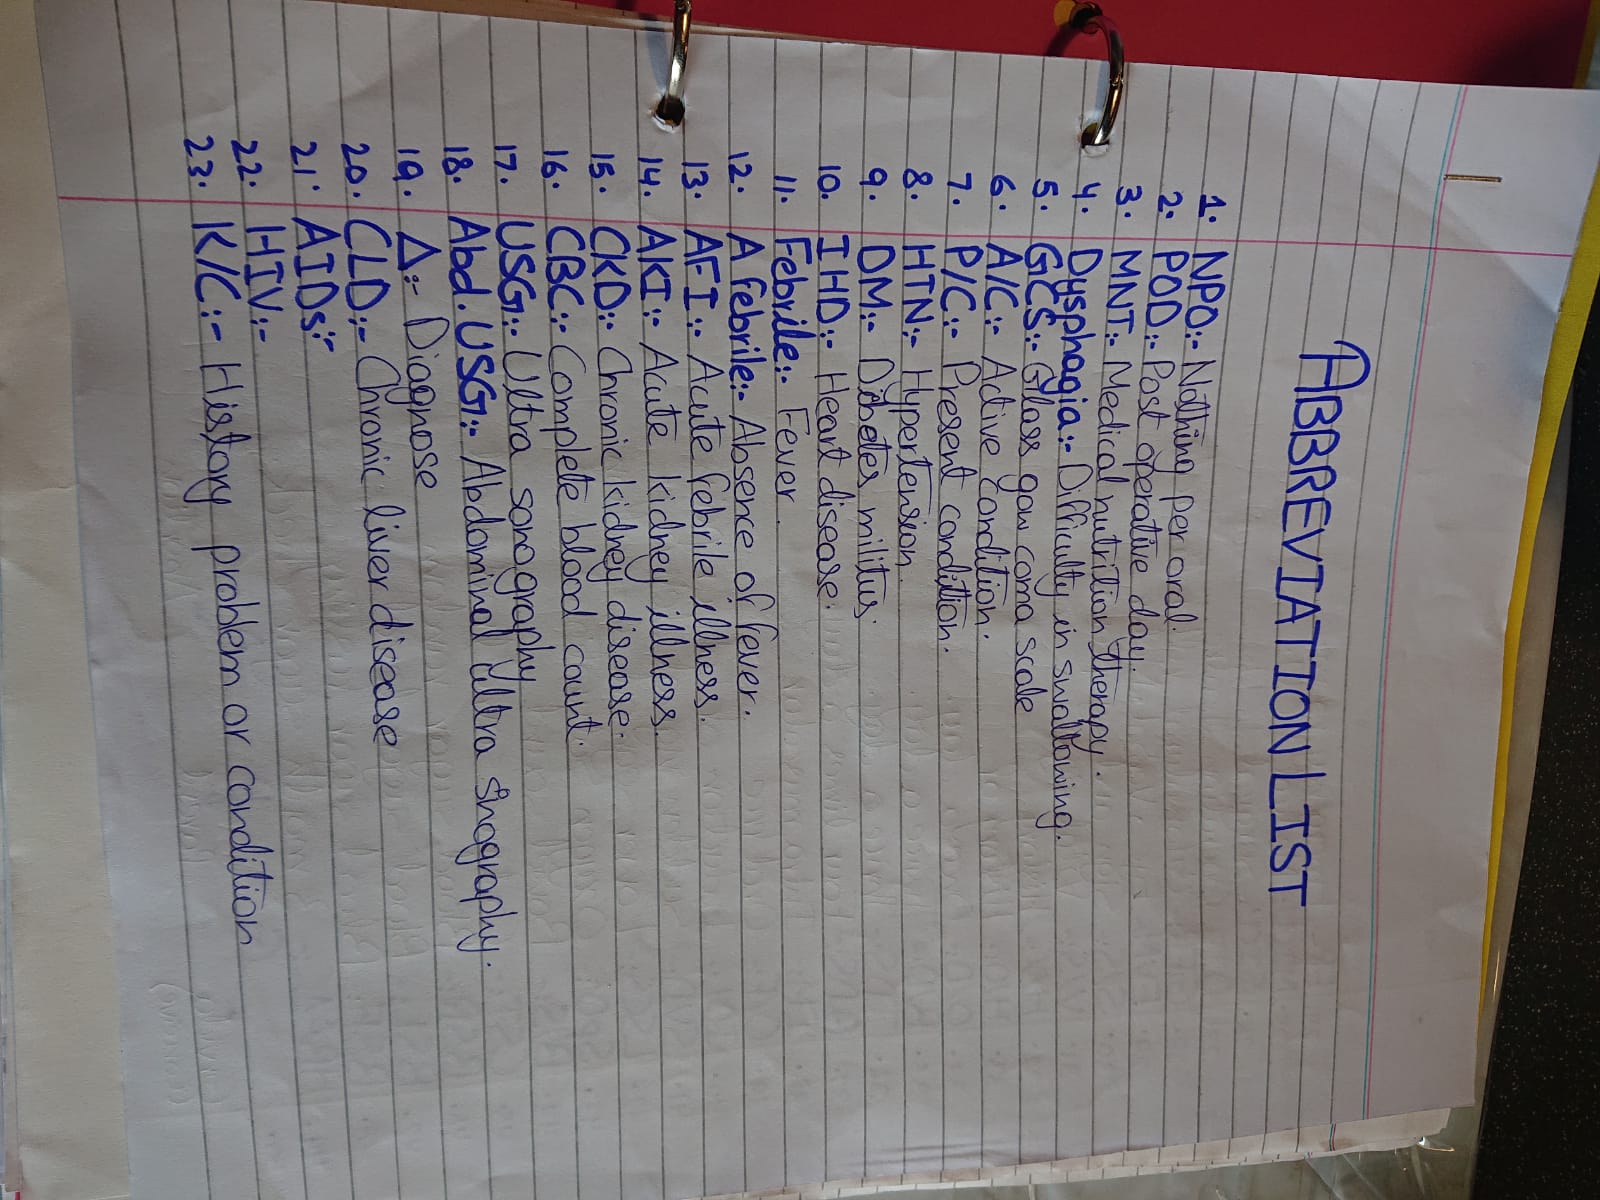 ABBREVIATION LIST
1. NPO:- Nothing per oral.
2. POD:- Post operative day.
3. MNT:- Medical nutrition therapy.
4. Dysphagia:- Difficulty in swallowing.
5. GCS:- Glass gow coma scale
6. A/C:- Active condition.
7. P/C:- Present condition.
8. HTN:- Hypertension.
9. DM:- Diabetes militus.
10. IHD:- Heart disease.
11. Febrile:- Fever.
12. A febrile:- Absence of fever.
13. AFI:- Acute febrile illness.
14. AKI:- Acute kidney illness.
15. CKD:- Chronic kidney disease.
16. CBC:- Complete blood count.
17. USG:- Ultra sonography
18. Abd. USG:- Abdominal Ultra snography.
19. Δ:- Diagnose
20. CLD:- Chronic liver disease
21. AIDs:-
22. HIV:-
23. K/C:- History problem or condition